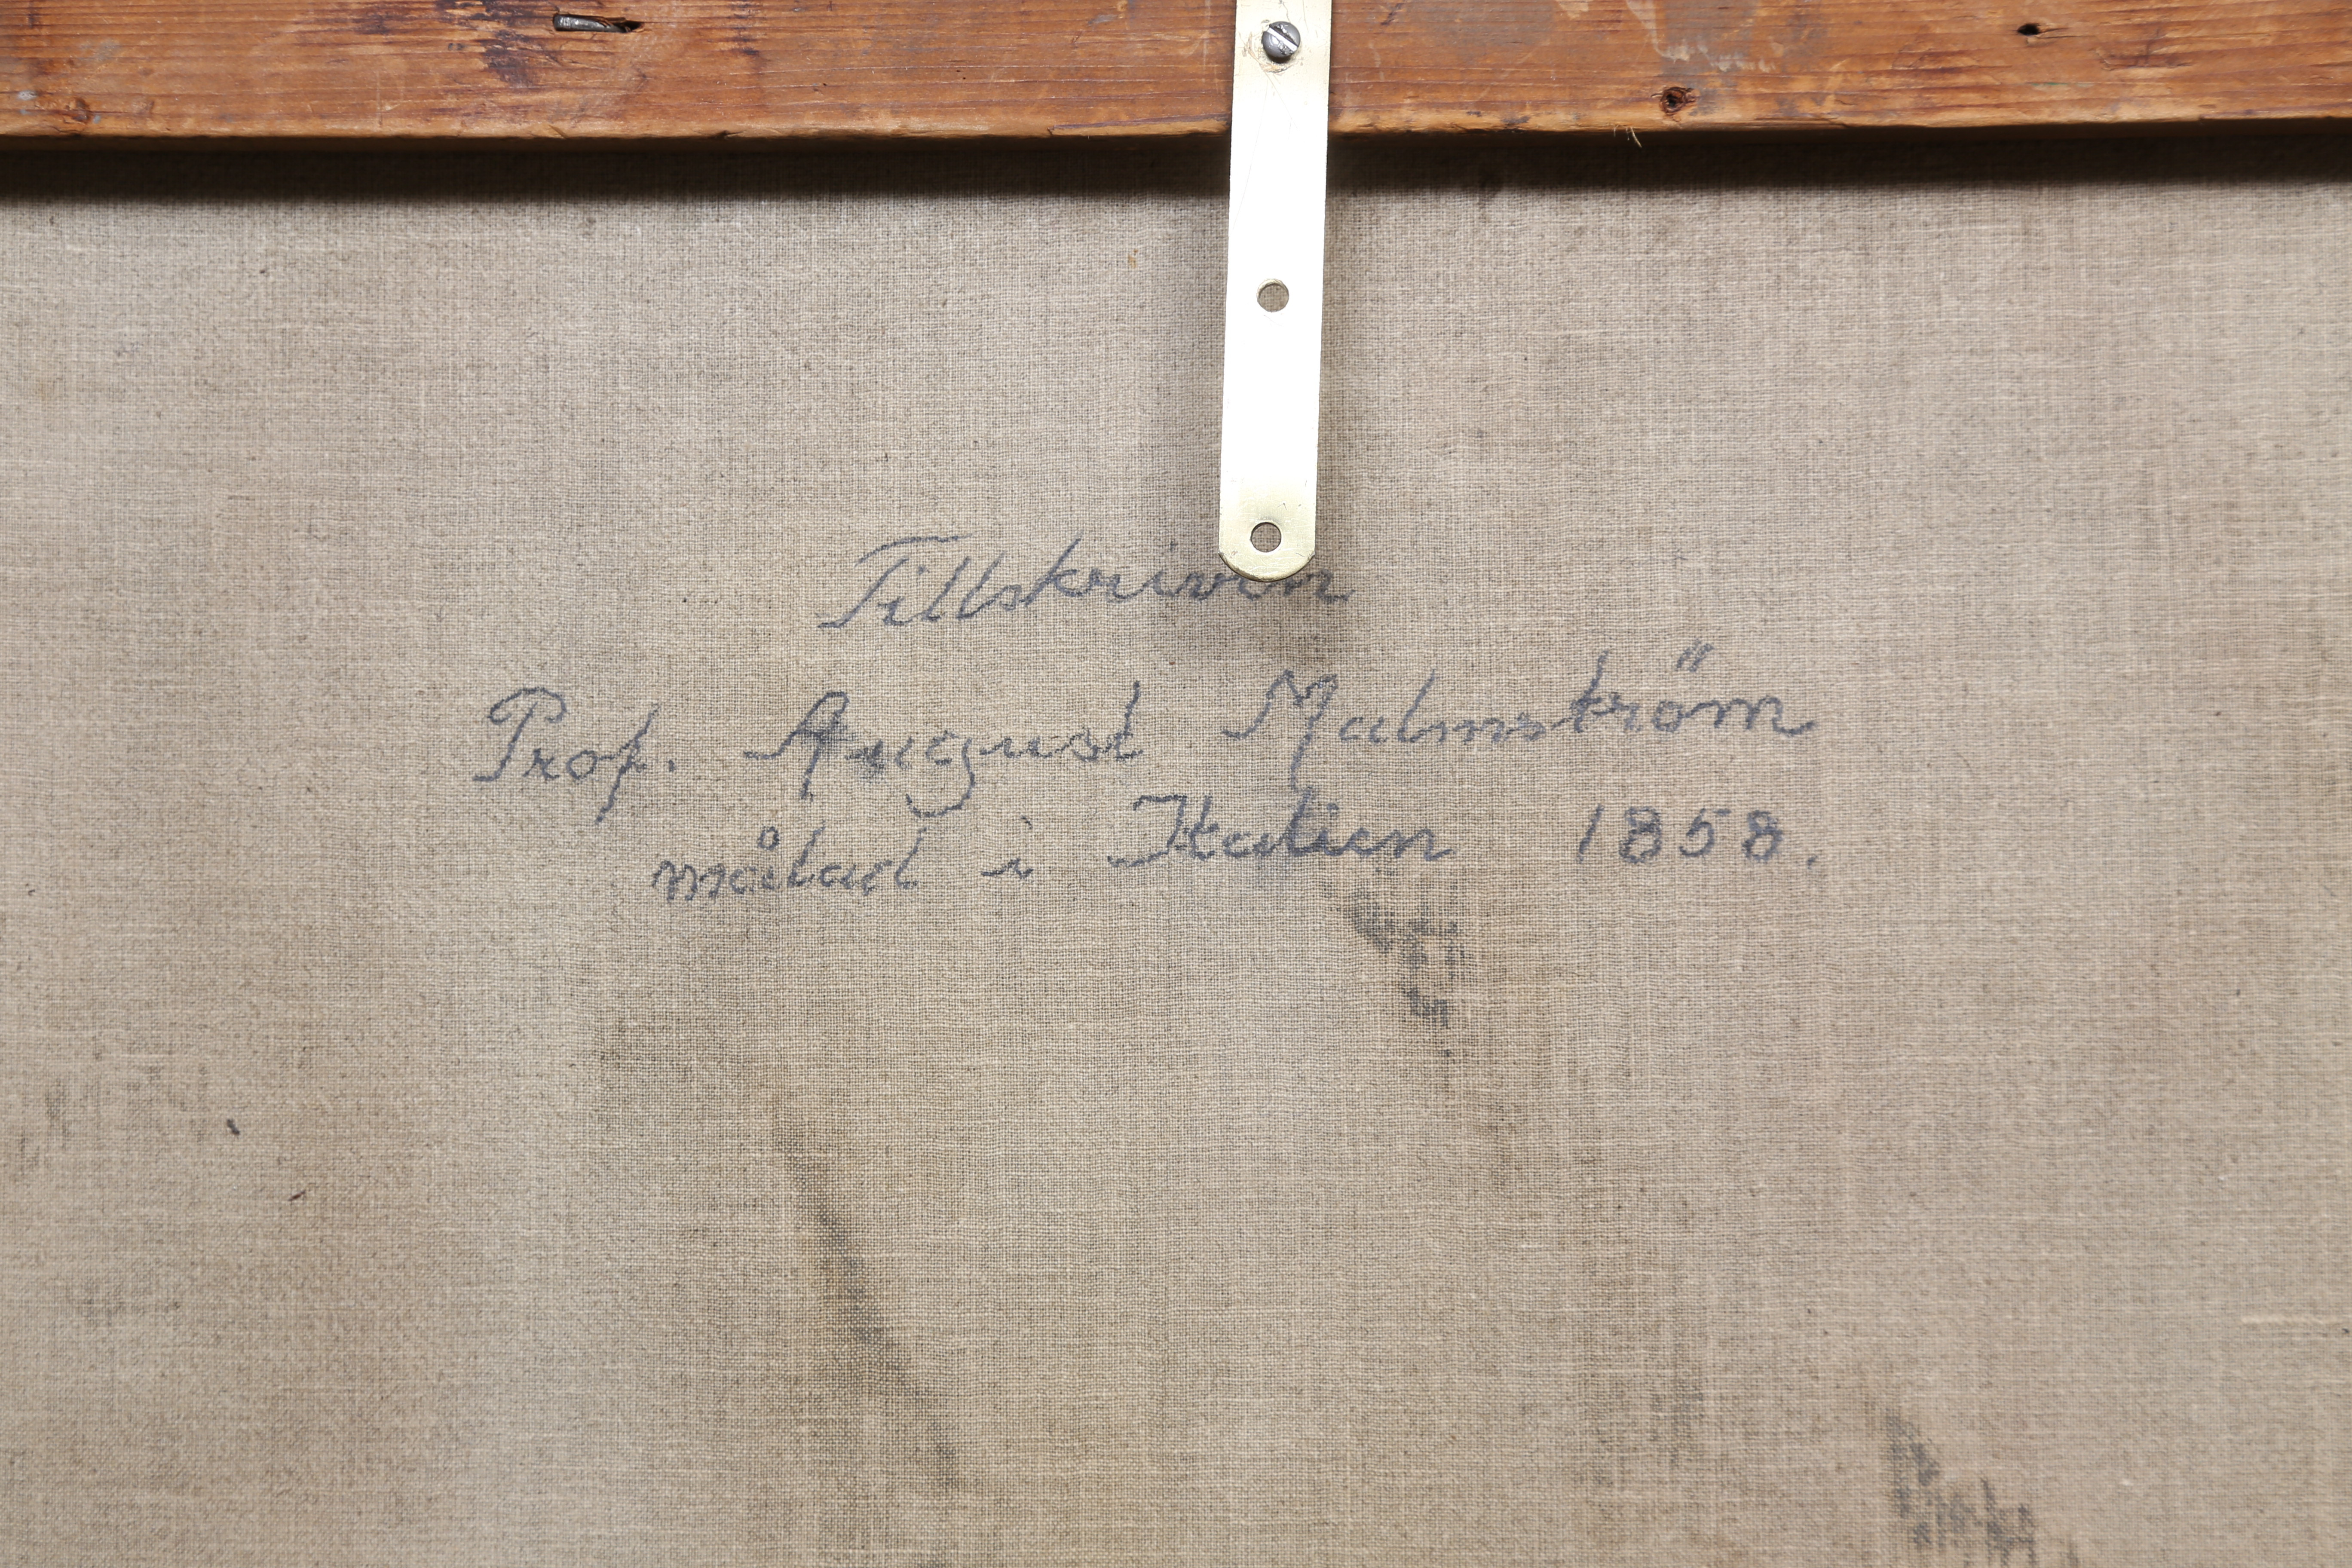 Tillskriven
Prof. August Malmström
målad i Italien 1858.